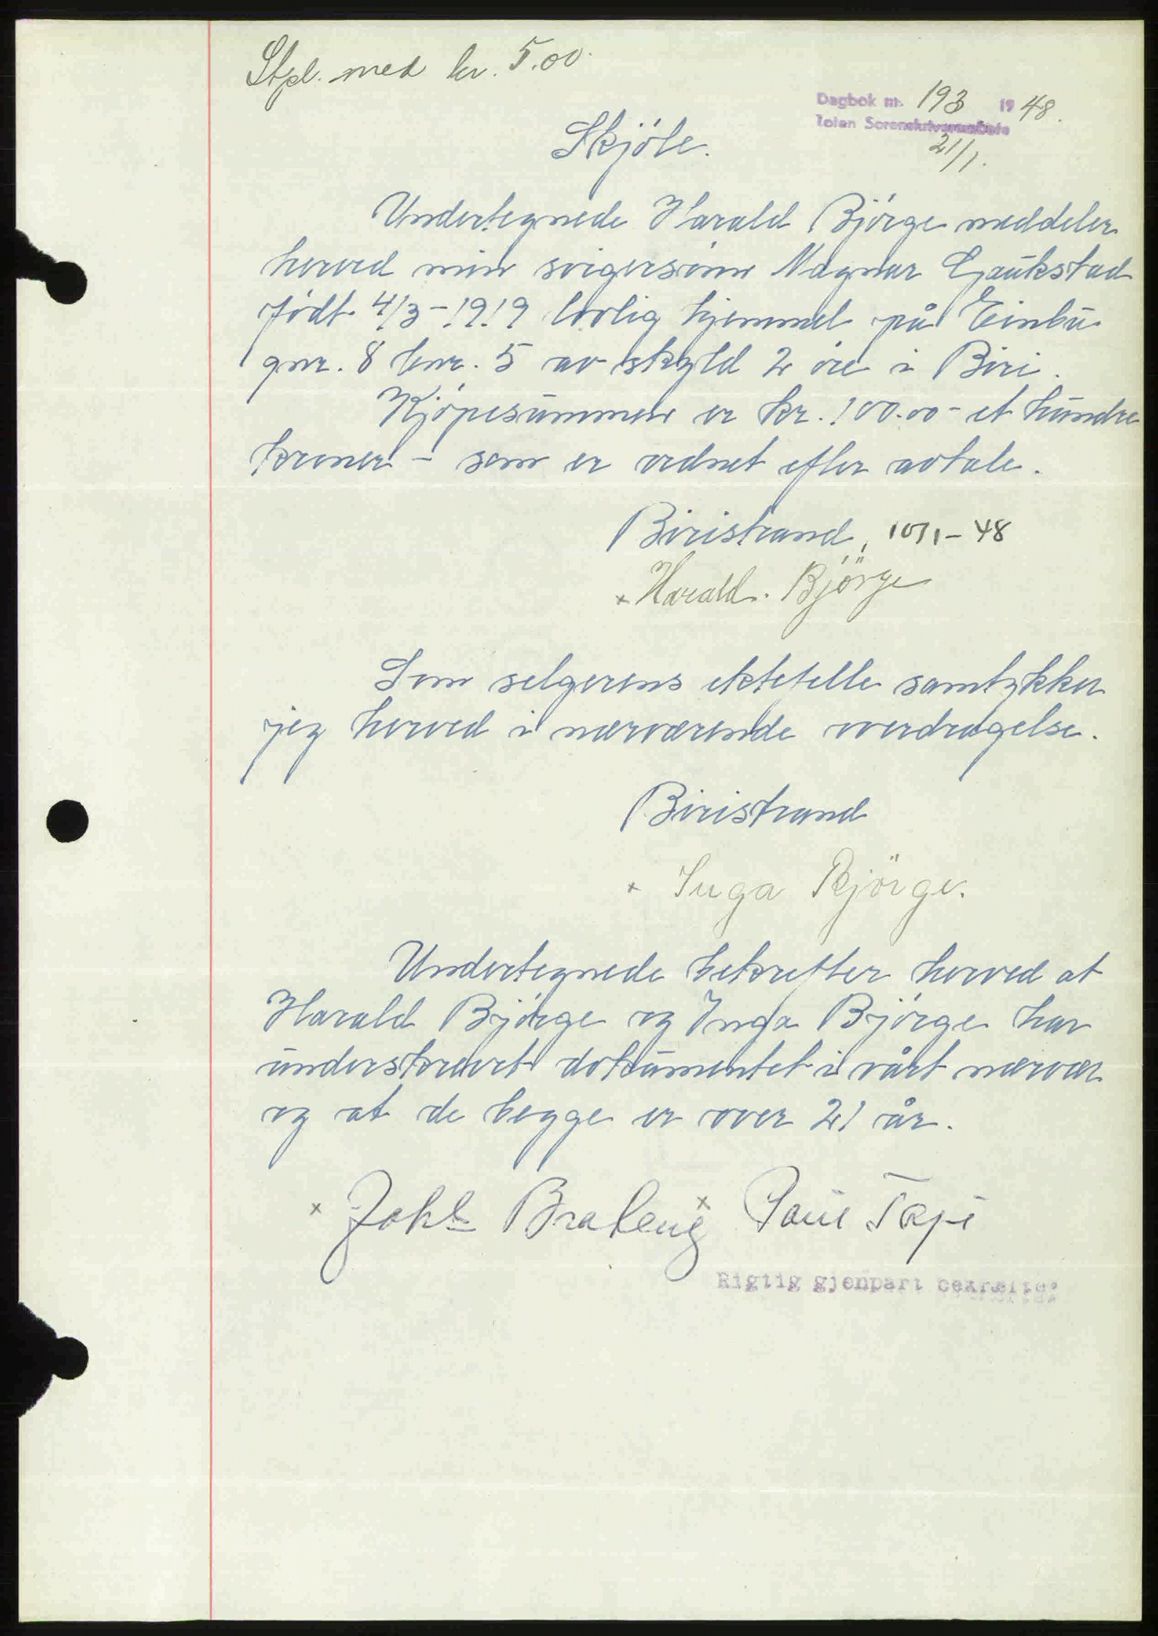 Stpl. med kr. 5.00.
Dagbok nr. 193 1948.
Toten Sorenskriverembete
21/1.
Skjöte.
Undertegnede Harald Bjørge meddeler
herved min svigersønn Magnar Gaukstad
født 4/3-1919 lovlig hjemmel på Einbu
gnr. 8 bnr. 5 av skyld 2 øre i Biri.
Kjøpesummen er kr. 100.00 - et hundre
kroner - som er ordnet efter avtale.
Biristrand, 10/1-48
x Harald. Bjørge
Som selgerens ektefelle samtykker
jeg herved i nærværende overdragelse.
Biristrand
x Inga Bjørge.
Undertegnede bekrefter herved at
Harald Bjørge og Inga Bjørge har
underskrevet dokumentet i vårt nærvær
og at de begge er over 21 år.
x Johs Brateng x Paul
Rigtig gjenpart bekræftes